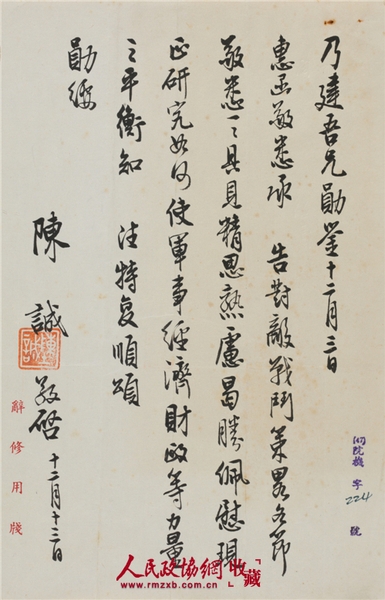 乃建吾兄勛鑒十二月三日
惠函敬悉承 告對敵戰鬥策畧各節
敬悉一一具見精思熟慮曷勝佩慰現
正研究如何使軍事經濟財政等力量
之平衡知 注特复順頌
勛綏
陳 誠 敬啓 十二月十三日
陳誠
辭修用牋
院機字224號
人民政协網 收藏
www.rmzxb.com.cn